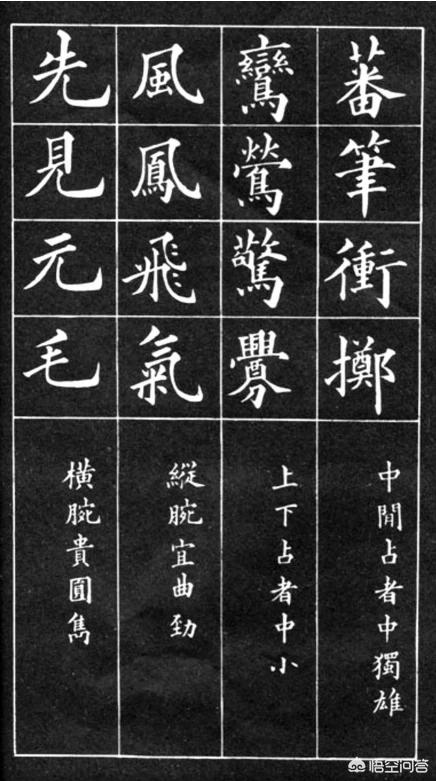 蕃筆衝擲
中閒占者中獨雄
鸞鶯驚釁
上下占者中小
風鳳飛氣
縱腕宜曲勁
先見元毛
橫腕貴圓雋
悟空问答